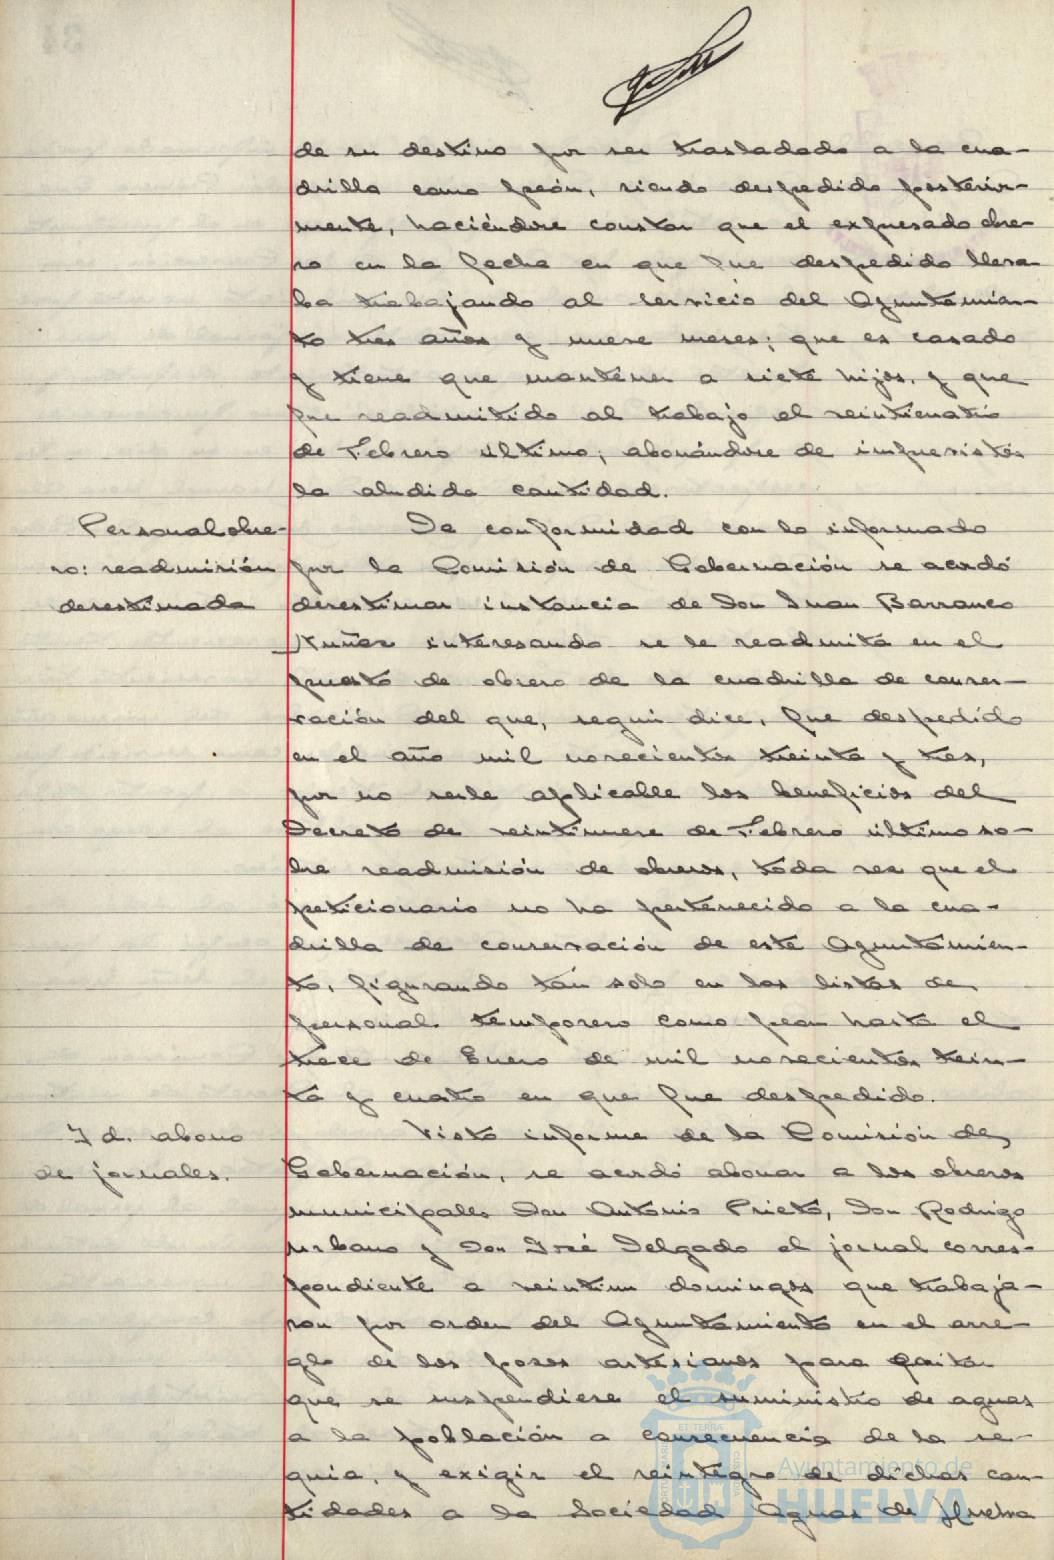 de su destino por ser trasladado a la cua-
drilla como peón, siendo despedido posterior-
mente, haciéndose constar que el expresado obre-
ro en la fecha en que fue despedido lleva-
ba trabajando al servicio del Ayuntamien-
to tres años y nueve meses; que es casado
y tiene que mantener a siete hijos, y que
fue readmitido al trabajo el veinticuatro
de Febrero último; abonándose de imprevistos
la aludida cantidad.
Personal obre-
ro: readmisión
desestimada
De conformidad con lo informado
por la Comisión de Gobernación se acordó
desestimar instancia de Don Juan Barranco
Nuñez interesando se le readmita en el
puesto de obrero de la cuadrilla de conser-
vación del que, según dice, fue despedido
en el año mil novecientos treinta y tres,
por no serle aplicable los beneficios del
Decreto de veintinueve de Febrero último so-
bre readmisión de obreros, toda vez que el
peticionario no ha pertenecido a la cua-
drilla de conservación de este Ayuntamien-
to, figurando tan solo en las listas de
personal temporero como peon hasta el
trece de Enero de mil novecientos trein-
ta y cuatro en que fue despedido.
Id. abono
de jornales.
Visto informe de la Comisión de
Gobernación, se acordó abonar a los obreros
municipales Don Antonio Prieto, Don Rodrigo
Urbano y Don José Delgado el jornal corres-
pondiente a veintiun domingos que trabaja-
ron por orden del Ayuntamiento en el arre-
glo de los pozos artesianos para evitar
que se suspendiese el suministro de aguas
a la población a consecuencia de la se-
quia, y exigir el reintegro de dichas can-
tidades a la Sociedad Aguas de Huelva
Ayuntamiento de
HUELVA